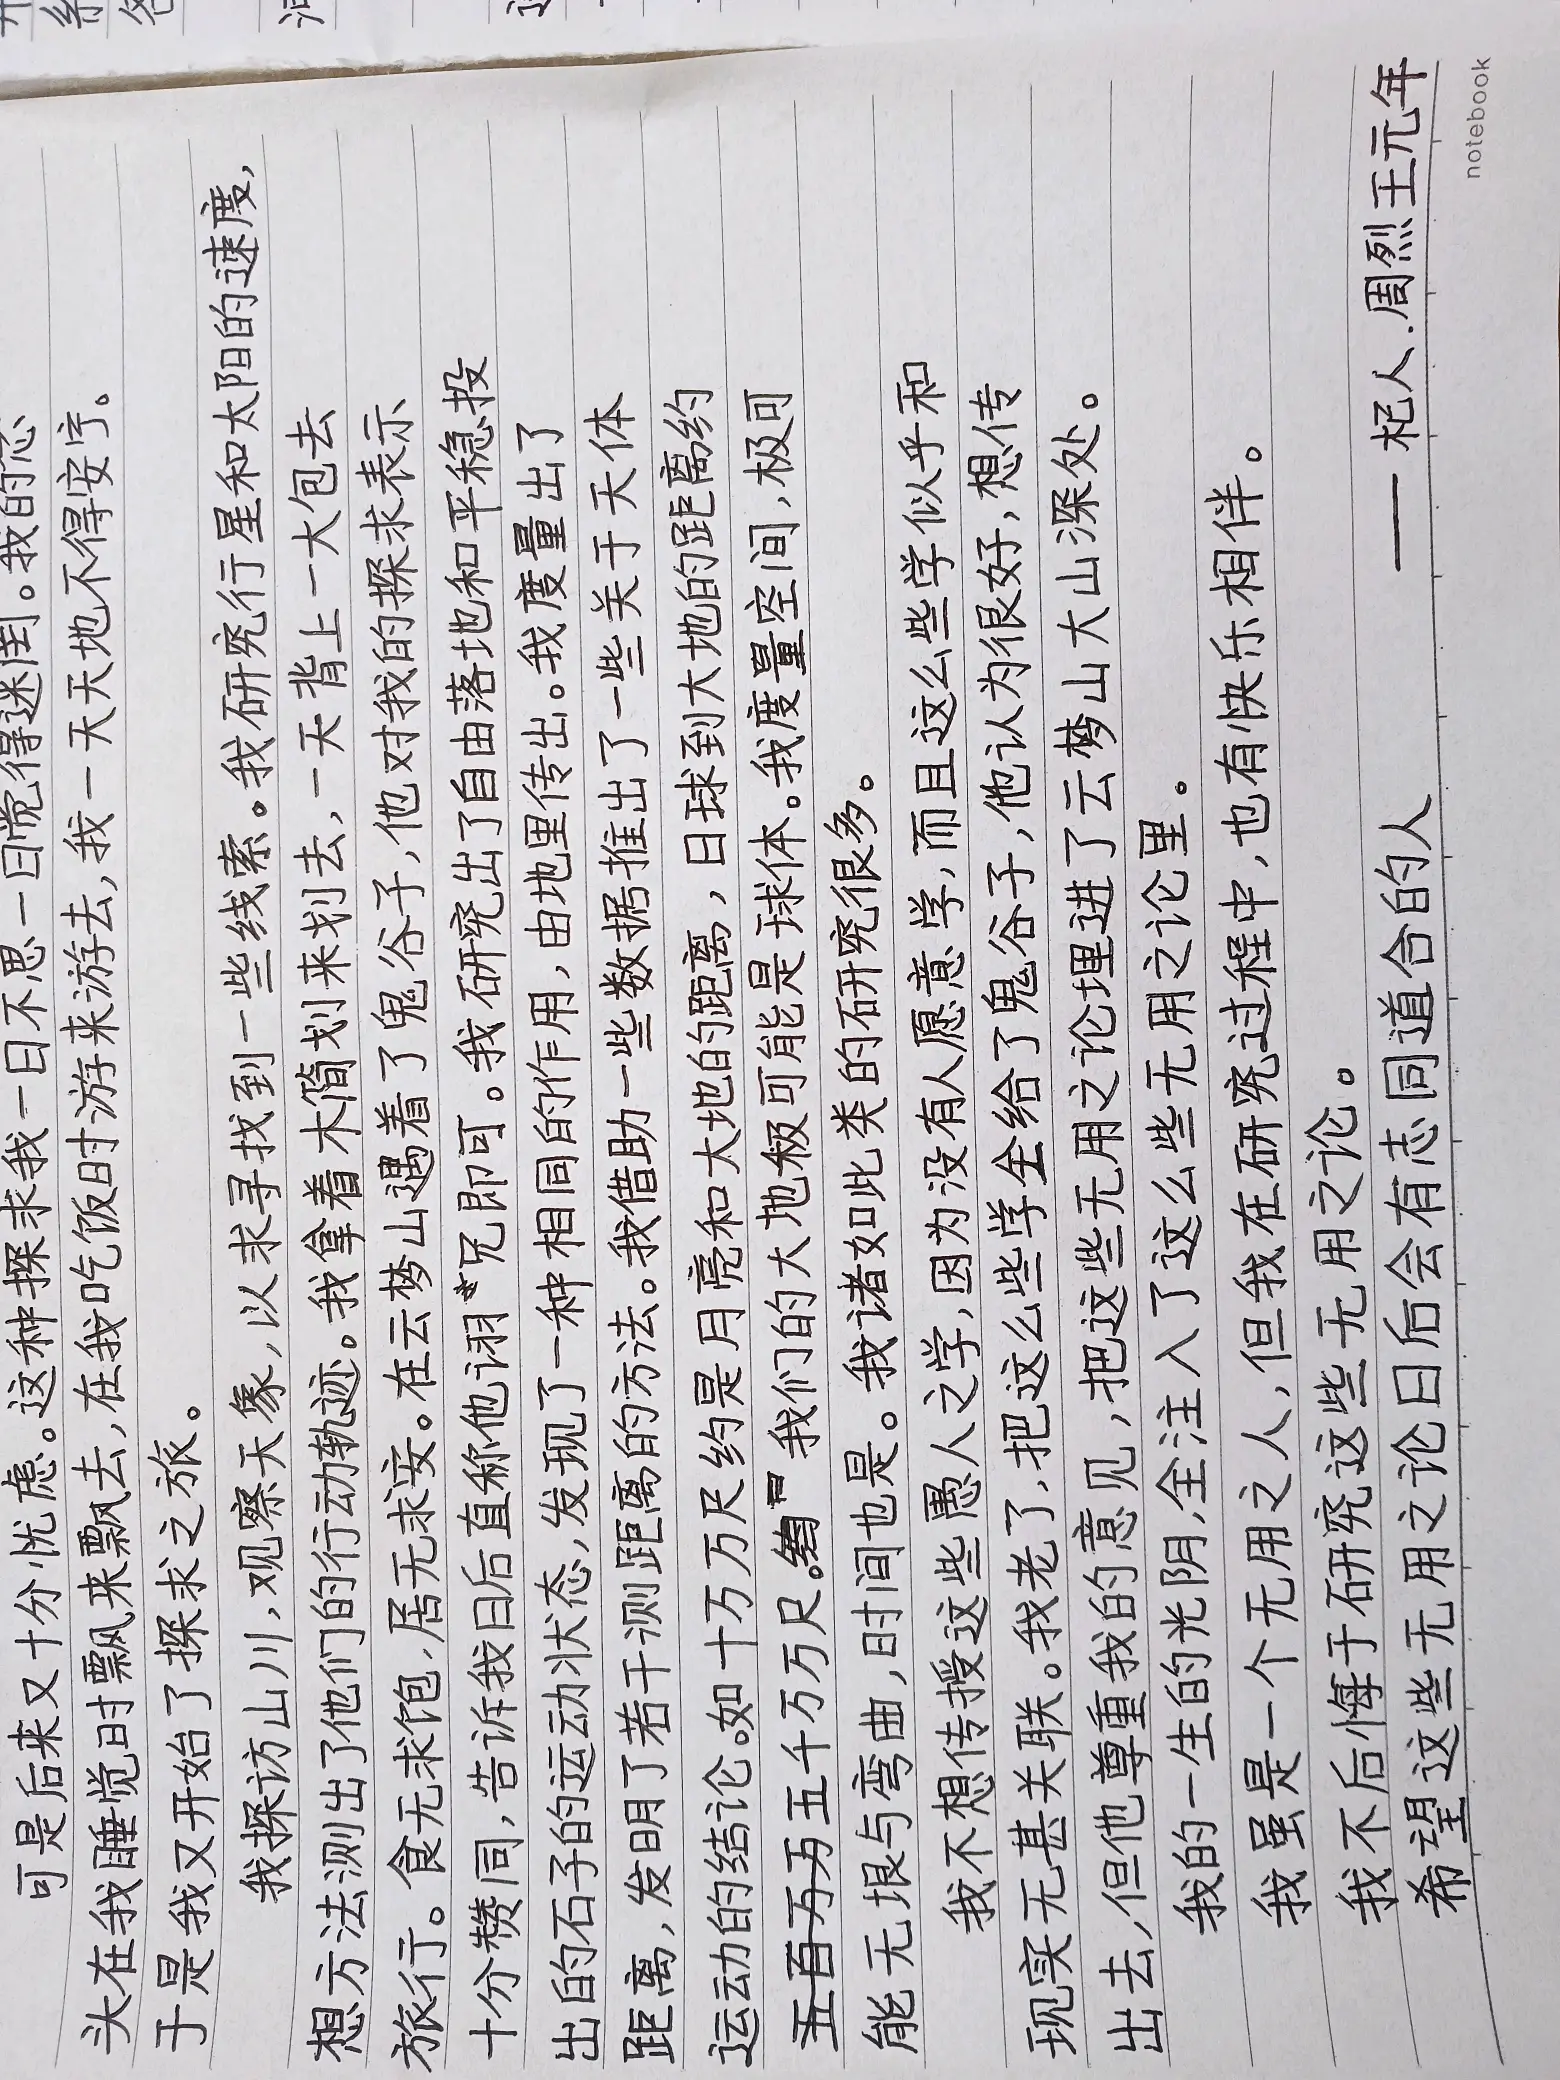 可是后来又十分忧虑。这种探求我一日不思一日觉得迷惘。我的念
头在我睡觉时飘来飘去，在我吃饭时游来游去，我一天天地不得安宁。
于是我又开始了探求之旅。
我探访山川，观察天象，以求寻找到一些线索。我研究行星和太阳的速度，
想方法测出了他们的行动轨迹。我拿着木简划来划去，一天背上一大包去
旅行。食无求饱，居无求安。在云梦山遇着了鬼谷子，他对我的探求表示
十分赞同，告诉我日后直称他诩"兄即可。我研究出了自由落地和平稳投
出的石子的运动状态，发现了一种相同的作用，由地里传出。我度量出了
距离，发明了若干测距离的方法。我借助一些数据推出了一些关于天体
运动的结论。如十万万尺约是月亮和大地的距离，日球到大地的距离约
五百万万五千万万尺。我们的大地极可能是球体。我度量空间，极可
能无垠与弯曲，时间也是。我诸如此类的研究很多。
我不想传授这些愚人之学，因为没有人愿意学，而且这么些学似乎和
现实无甚关联。我老了，把这么些学全给了鬼谷子，他认为很好，想传
出去，但他尊重我的意见，把这些无用之论埋进了云梦山大山深处。
我的一生的光阴，全注入了这么些无用之论里。
我虽是一个无用之人，但我在研究过程中，也有快乐相伴。
我不后悔于研究这些无用之论。
希望这些无用之论日后会有志同道合的人
——杞人.周烈王元年
notebook